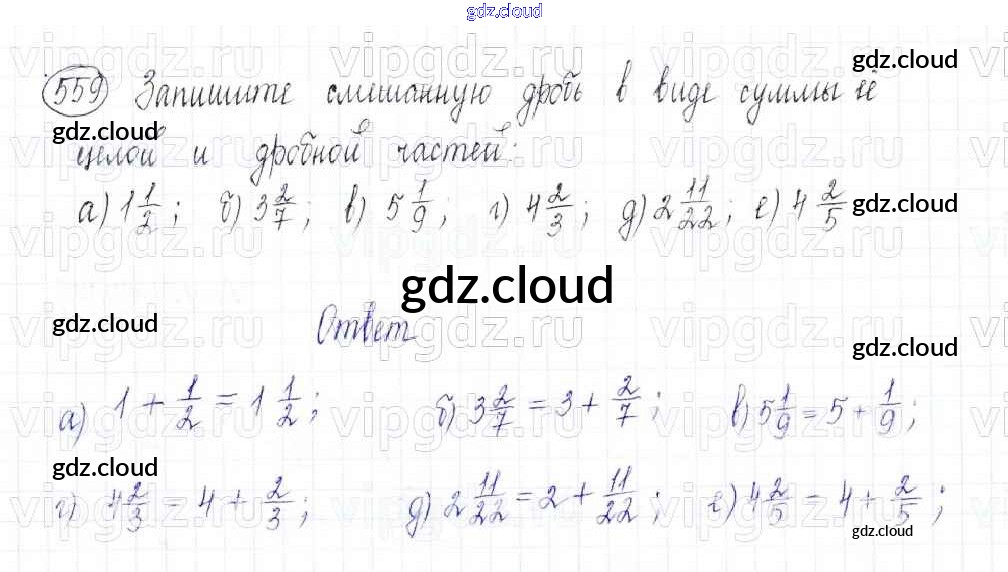 gdz.cloud
559 Запишите смешанную дробь в виде суммы её
целой и дробной частей:
а) 1 1/2; б) 3 2/7; в) 5 1/9; г) 4 2/3; д) 2 11/22; е) 4 2/5
Ответ
а) 1 + 1/2 = 1 1/2; б) 3 2/7 = 3 + 2/7; в) 5 1/9 = 5 + 1/9;
г) 4 2/3 = 4 + 2/3; д) 2 11/22 = 2 + 11/22; е) 4 2/5 = 4 + 2/5;
gdz.cloud
gdz.cloud
gdz.cloud
gdz.cloud
gdz.cloud
gdz.cloud
gdz.cloud
gdz.cloud
vipgdz.ru vipgdz.ru vipgdz.ru